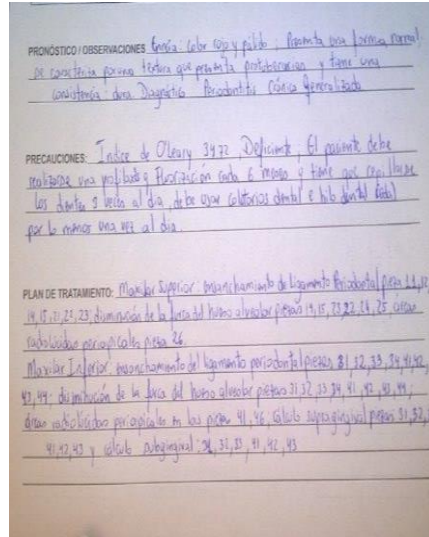 PRONÓSTICO / OBSERVACIONES Encía: Color rojo y pálido; Presenta una forma normal.
se caracteriza por una textura que presenta protuberancias y tiene una
consistencia: dura. Diagnóstico Periodontitis Crónica Generalizada
PRECAUCIONES: Índice de O'Leary Deficiente; El paciente debe
realizarse una profilaxis y Fluorización cada 6 meses y tiene que cepillarse
los dientes 3 veces al día, debe usar colutorios dental e hilo dental
por lo menos una vez al día.
PLAN DE TRATAMIENTO: Maxilar Superior: ensanchamiento de ligamento Periodontal pieza
14, 15, 21, 22, 23; disminución de la del hueso alveolar piezas 14, 15, 23, 22, 24, 25 áreas
radiolúcidas periapicales pieza 26.
Maxilar Inferior: ensanchamiento del ligamento periodontal piezas 31, 32, 33, 34, 41, 42,
43, 44; disminución de la del hueso alveolar piezas 31 32 33 34, 41, 42, 43, 44;
áreas radiolúcidas periapicales en las piezas 41, 46, cálculo supragingival piezas 31, 32,
41, 42, 43 y cálculo subgingival: 31, 32, 33, 41, 42, 43